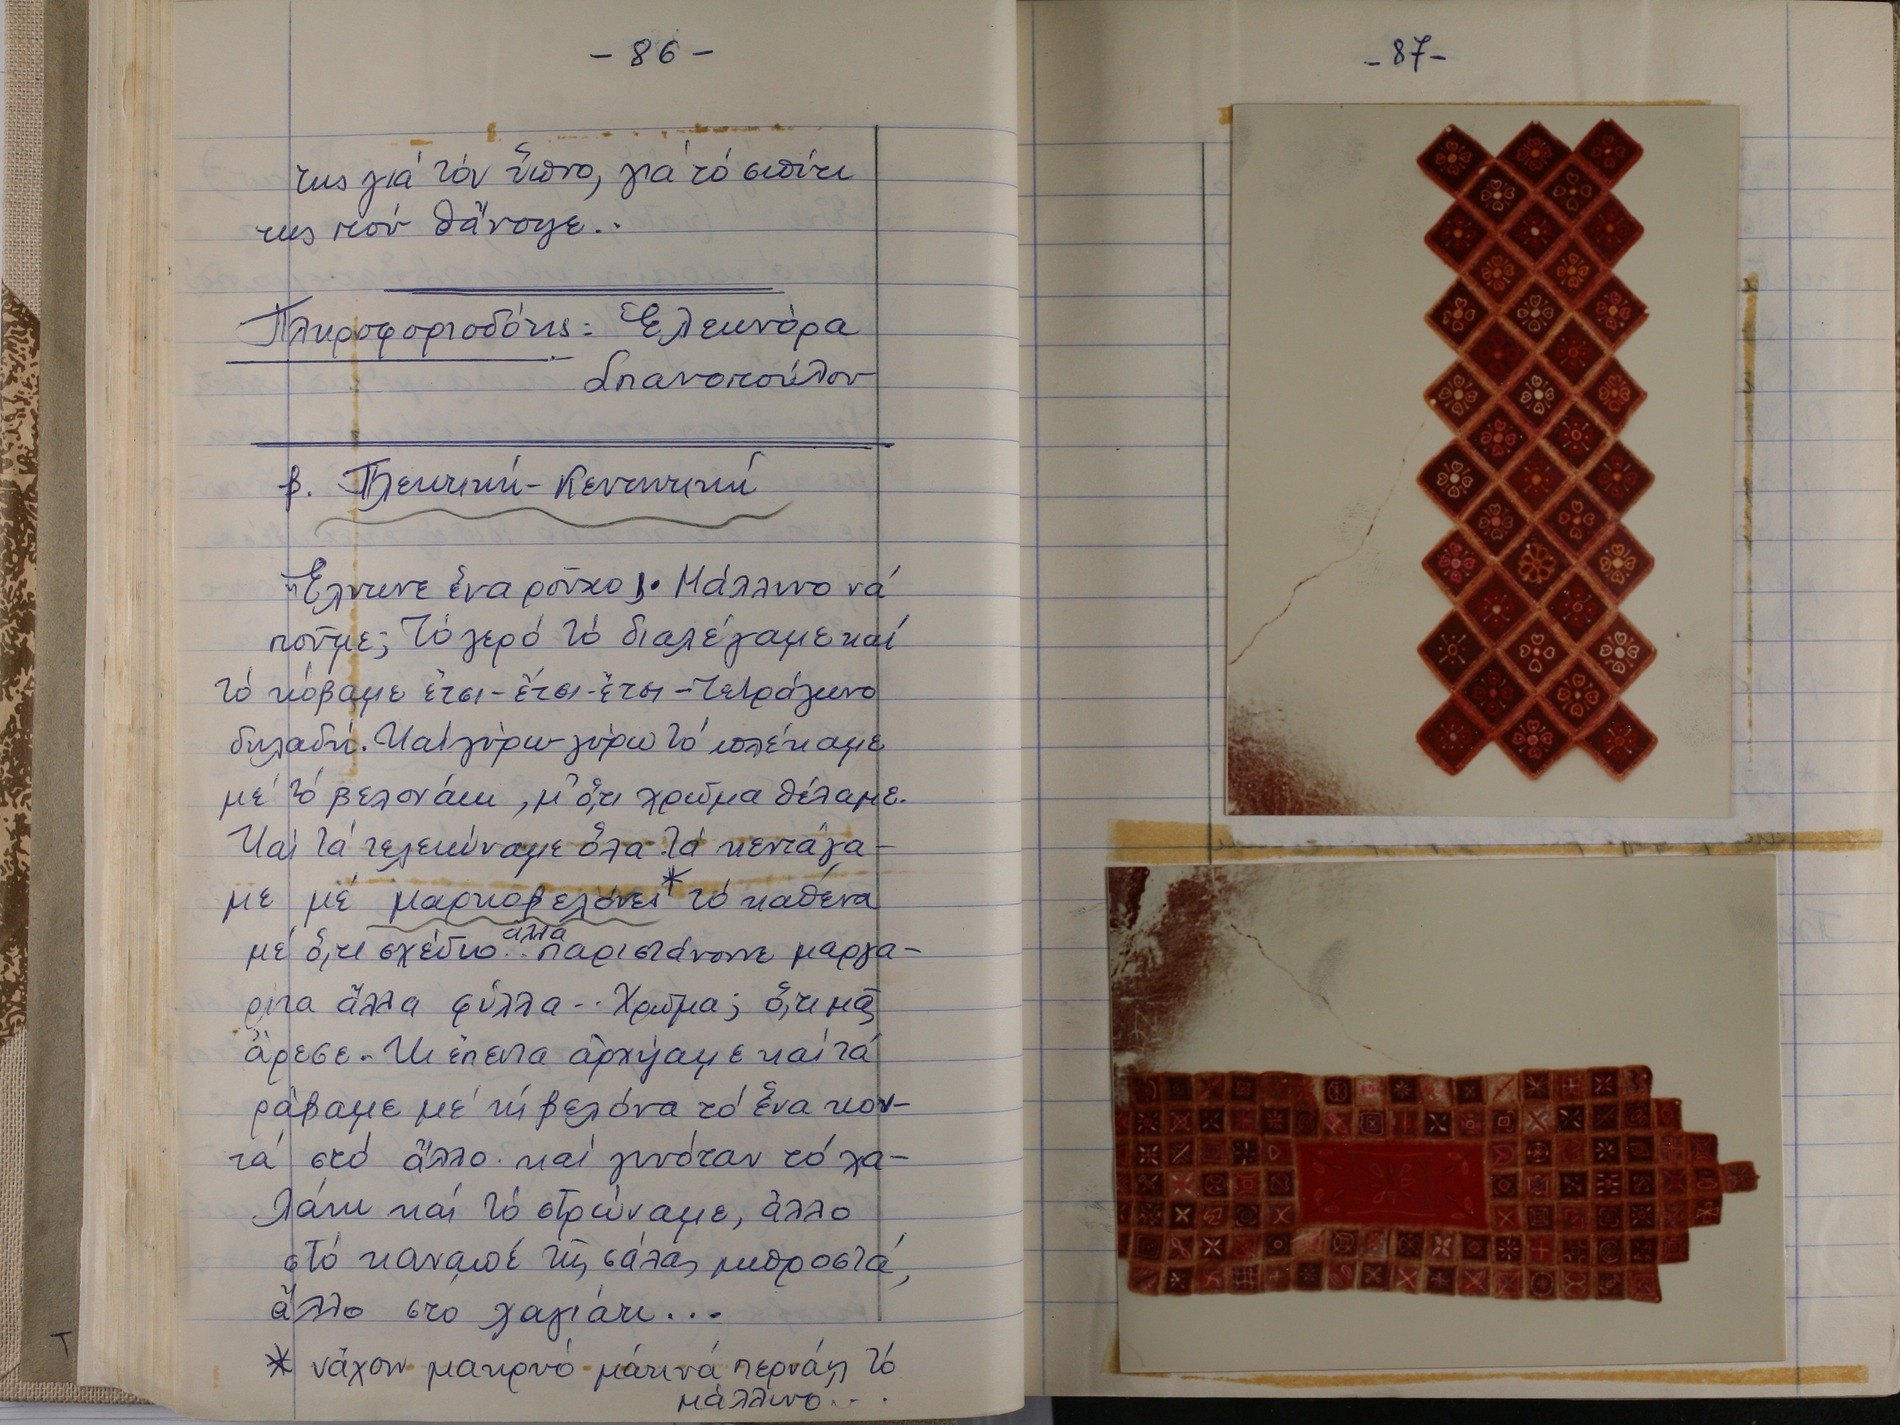 - 86 -
της γιά τόν ὕπνο, γιά τό σπίτι
της πού θἄνοιγε..
Πληροφοριοδότης: Ἑλεωνόρα
Σπανοπούλου
β. Πλεκτική - Κεντητική
Ἔλυωνε ἕνα ροῦχο;. Μάλλινο νά
ποῦμε; Τό γερό τό διαλέγαμε καί
τό κόβαμε ἔτσι - ἔτσι - ἔτσι - Τετράγωνο
δηλαδή. Καί γύρω - γύρω τό πλέκαμε
μέ τό βελονάκι, μ' ὅ,τι χρῶμα θέλαμε.
Καί τά τελειώναμε ὅλα. Τά κεντάγα-
με μέ μαρκοβελόνες* τό καθένα
μέ ὅ,τι σχέδιο.. ἄλλα παριστάνουνε μαργα-
ρίτα ἄλλα φύλλα... Χρῶμα; ὅ,τι μᾶς
ἄρεσε. Κι ἔπειτα ἀρχίζαμε καί τά
ράβαμε μέ τή βελόνα τό ἕνα κον-
τά στό ἄλλο. καί γινόταν τό χα-
λάκι καί τό στρώναμε, ἄλλο
στό καναπέ τῆς σάλας μπροστά,
ἄλλο στο χαγιάτι...
* νἄχουν μακρυό μάτι νά περνάῃ τό
μάλλινο...
- 87 -